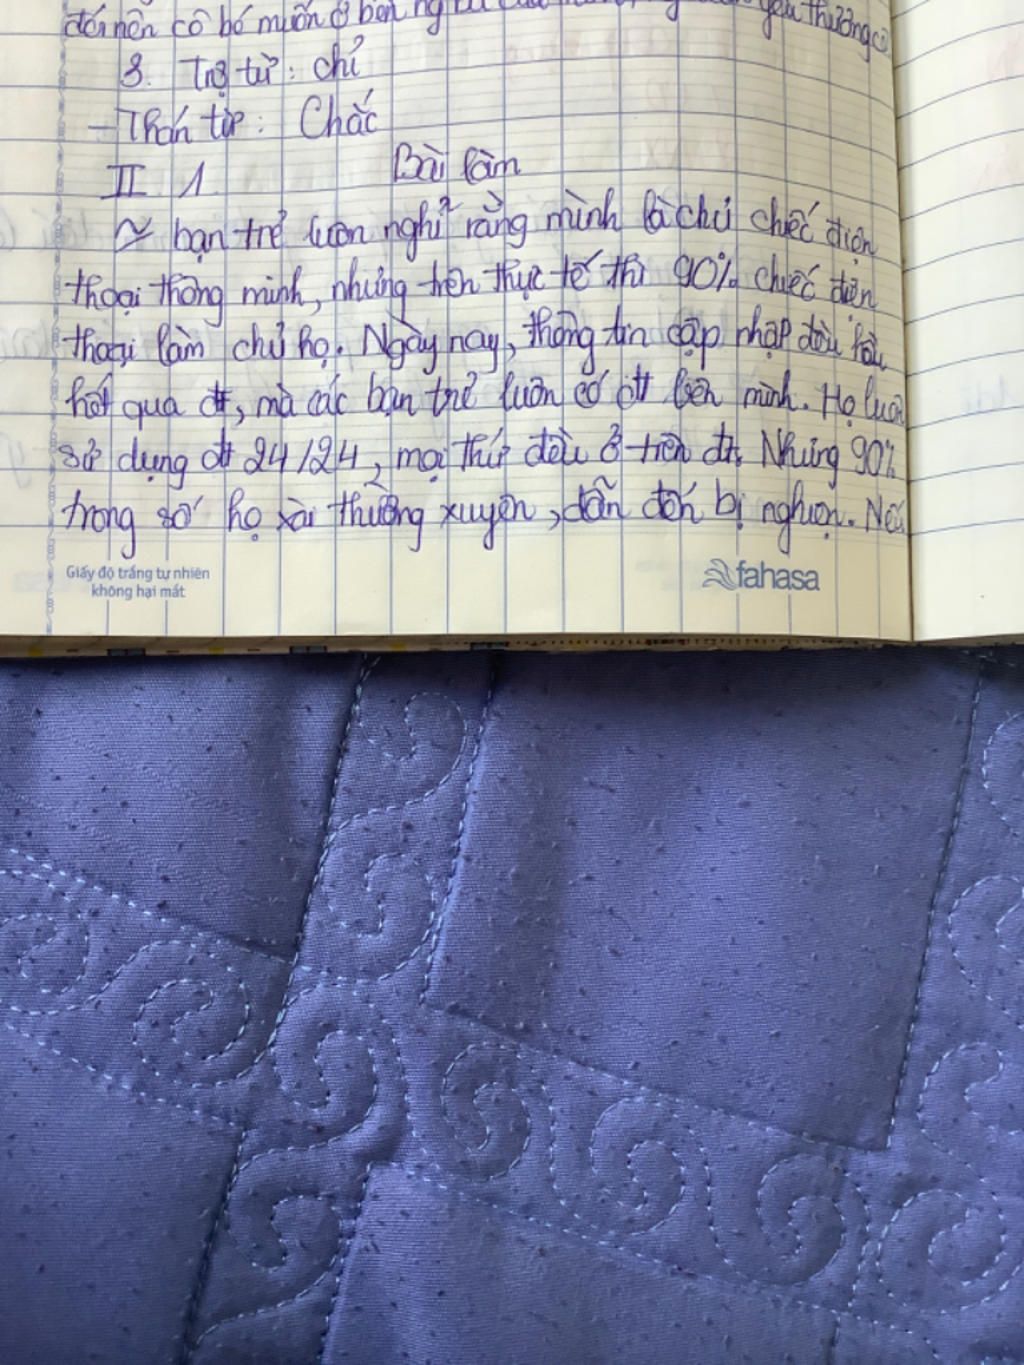 đói nên cô bé muốn ở bên người yêu thương cô
3. Trợ từ: chỉ
- Thán từ: Chắc
II 1 Bài làm
bạn trẻ luôn nghĩ rằng mình là chủ chiếc điện
thoại thông minh, nhưng trên thực tế thì 90% chiếc điện
thoại làm chủ họ. Ngày nay, thông tin cập nhập đều hầu
hết qua đt, mà các bạn trẻ luôn có đt bên mình. Họ luôn
sử dụng đt 24/24, mọi thứ đều ở trên đt. Nhưng 90%
trong số họ xài thường xuyên, dẫn đến bị nghiện. Nếu
Giấy độ trắng tự nhiên
không hại mắt
fahasa